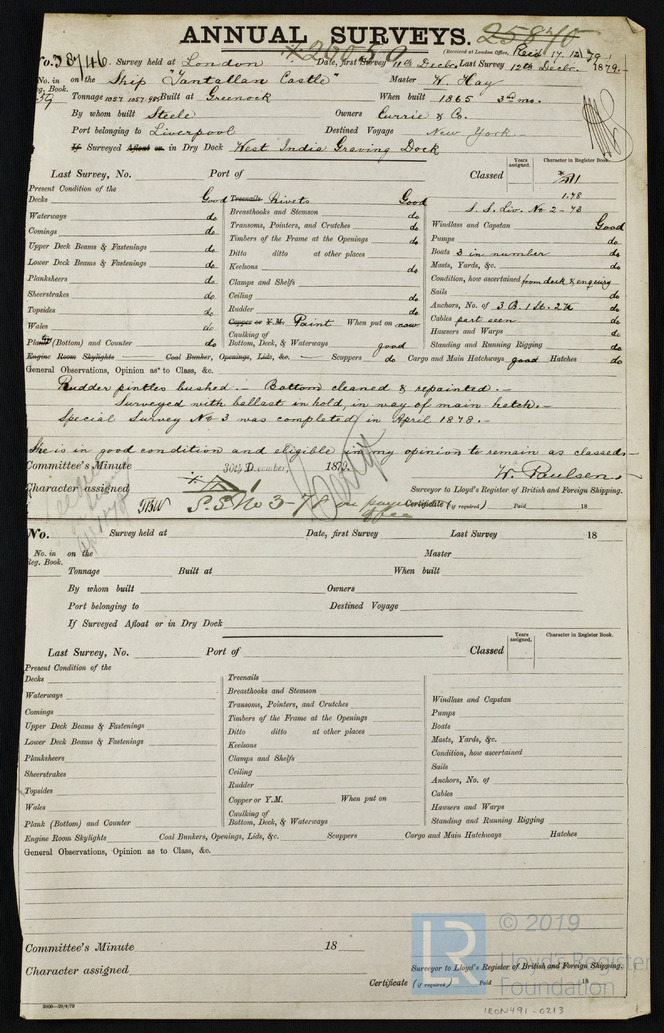 ANNUAL SURVEYS. 25840
(Received at London Office, Recd 17.12.79)
No. 38746 Survey held at London Date, first Survey 11th Decbr. Last Survey 12th Decbr. 1879.
No. in Reg. Book. 59 on the Ship "Tantallan Castle" Master W. Hay
Tonnage 1057 1057 985 Built at Greenock When built 1865 3rd mo.
By whom built Steele Owners Currie & Co.
Port belonging to Liverpool Destined Voyage New York.
If Surveyed Afloat or in Dry Dock West India Graving Dock
Years assigned. Character in Register Book.
Last Survey, No. Port of Classed
1.78
S. S. Liv. No 2-73
Present Condition of the
Decks Good Treenails Rivets Good
Waterways do Breasthooks and Stemson do Windlass and Capstan Good
Comings do Transoms, Pointers, and Crutches do Pumps do
Upper Deck Beams & Fastenings do Timbers of the Frame at the Openings do Boats 3 in number do
Lower Deck Beams & Fastenings do Ditto ditto at other places do Masts, Yards, &c. do
Planksheers do Keelsons do Condition, how ascertained from deck & enquiry
Sheerstrakes do Clamps and Shelfs do Sails do
Topsides do Ceiling do Anchors, No. of 3 B. 1 St. 2 K do
Wales do Rudder do Cables part seen do
Copper or Y.M. Paint When put on now Hawsers and Warps do
Plank (Bottom) and Counter do Caulking of Bottom, Deck, & Waterways good Standing and Running Rigging do
Engine Room Skylights Coal Bunker, Openings, Lids, &c. Scuppers do Cargo and Main Hatchways good Hatches do
General Observations, Opinion as to Class, &c.
Rudder pintles bushed. - Bottom cleaned & repainted. -
Surveyed with ballast in hold, in way of main hatch. -
Special Survey No 3 was completed in April 1878. -
She is in good condition and eligible in my opinion to remain as classed -
Committee's Minute 30th December, 1879. W. Paulsen
Character assigned Surveyor to Lloyd's Register of British and Foreign Shipping.
S.S. No 3-78 Certificate (if required) Paid 18
No. Survey held at Date, first Survey Last Survey 18
No. in Reg. Book. on the Master
Tonnage Built at When built
By whom built Owners
Port belonging to Destined Voyage
If Surveyed Afloat or in Dry Dock
Years assigned. Character in Register Book.
Last Survey, No. Port of Classed
Present Condition of the
Decks Treenails
Waterways Breasthooks and Stemson Windlass and Capstan
Comings Transoms, Pointers, and Crutches Pumps
Upper Deck Beams & Fastenings Timbers of the Frame at the Openings Boats
Lower Deck Beams & Fastenings Ditto ditto at other places Masts, Yards, &c.
Planksheers Keelsons Condition, how ascertained
Sheerstrakes Clamps and Shelfs Sails
Topsides Ceiling Anchors, No. of
Wales Rudder Cables
Copper or Y.M. When put on Hawsers and Warps
Plank (Bottom) and Counter Caulking of Bottom, Deck, & Waterways Standing and Running Rigging
Engine Room Skylights Coal Bunkers, Openings, Lids, &c. Scuppers Cargo and Main Hatchways Hatches
General Observations, Opinion as to Class, &c.
Committee's Minute 18
Character assigned Surveyor to Lloyd's Register of British and Foreign Shipping.
Certificate (if required) Paid 18
LR © 2019
Lloyd's Register
Foundation
LEON491-0213